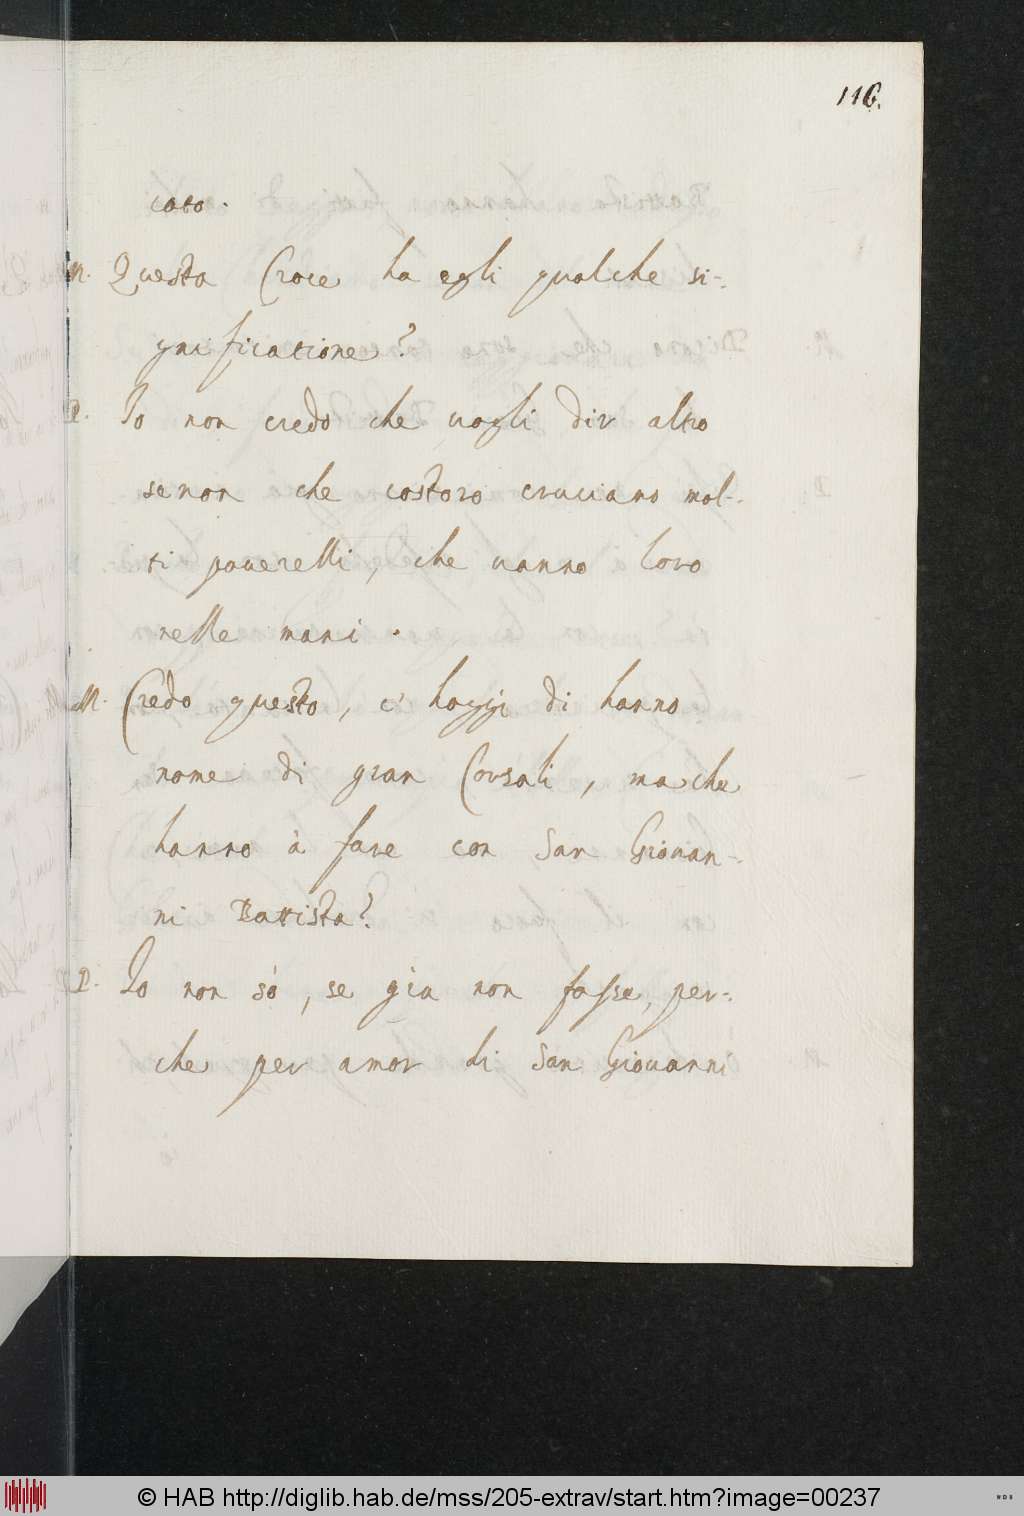 116.
cato.
M. Questa Croce ha egli qualche si-
gnificatione?
P. Io non credo che vogli dir altro
senon che costoro cruciano mol-
ti pouerelli, che vanno loro
nelle mani.
M. Credo questo, c' hoggi di hanno
nome di gran Corsali, ma che
hanno à fare con San Giovan-
ni Battista?
P. Io non sò, se gia non fosse, per-
che per amor di San Giouanni
© HAB http://diglib.hab.de/mss/205-extrav/start.htm?image=00237